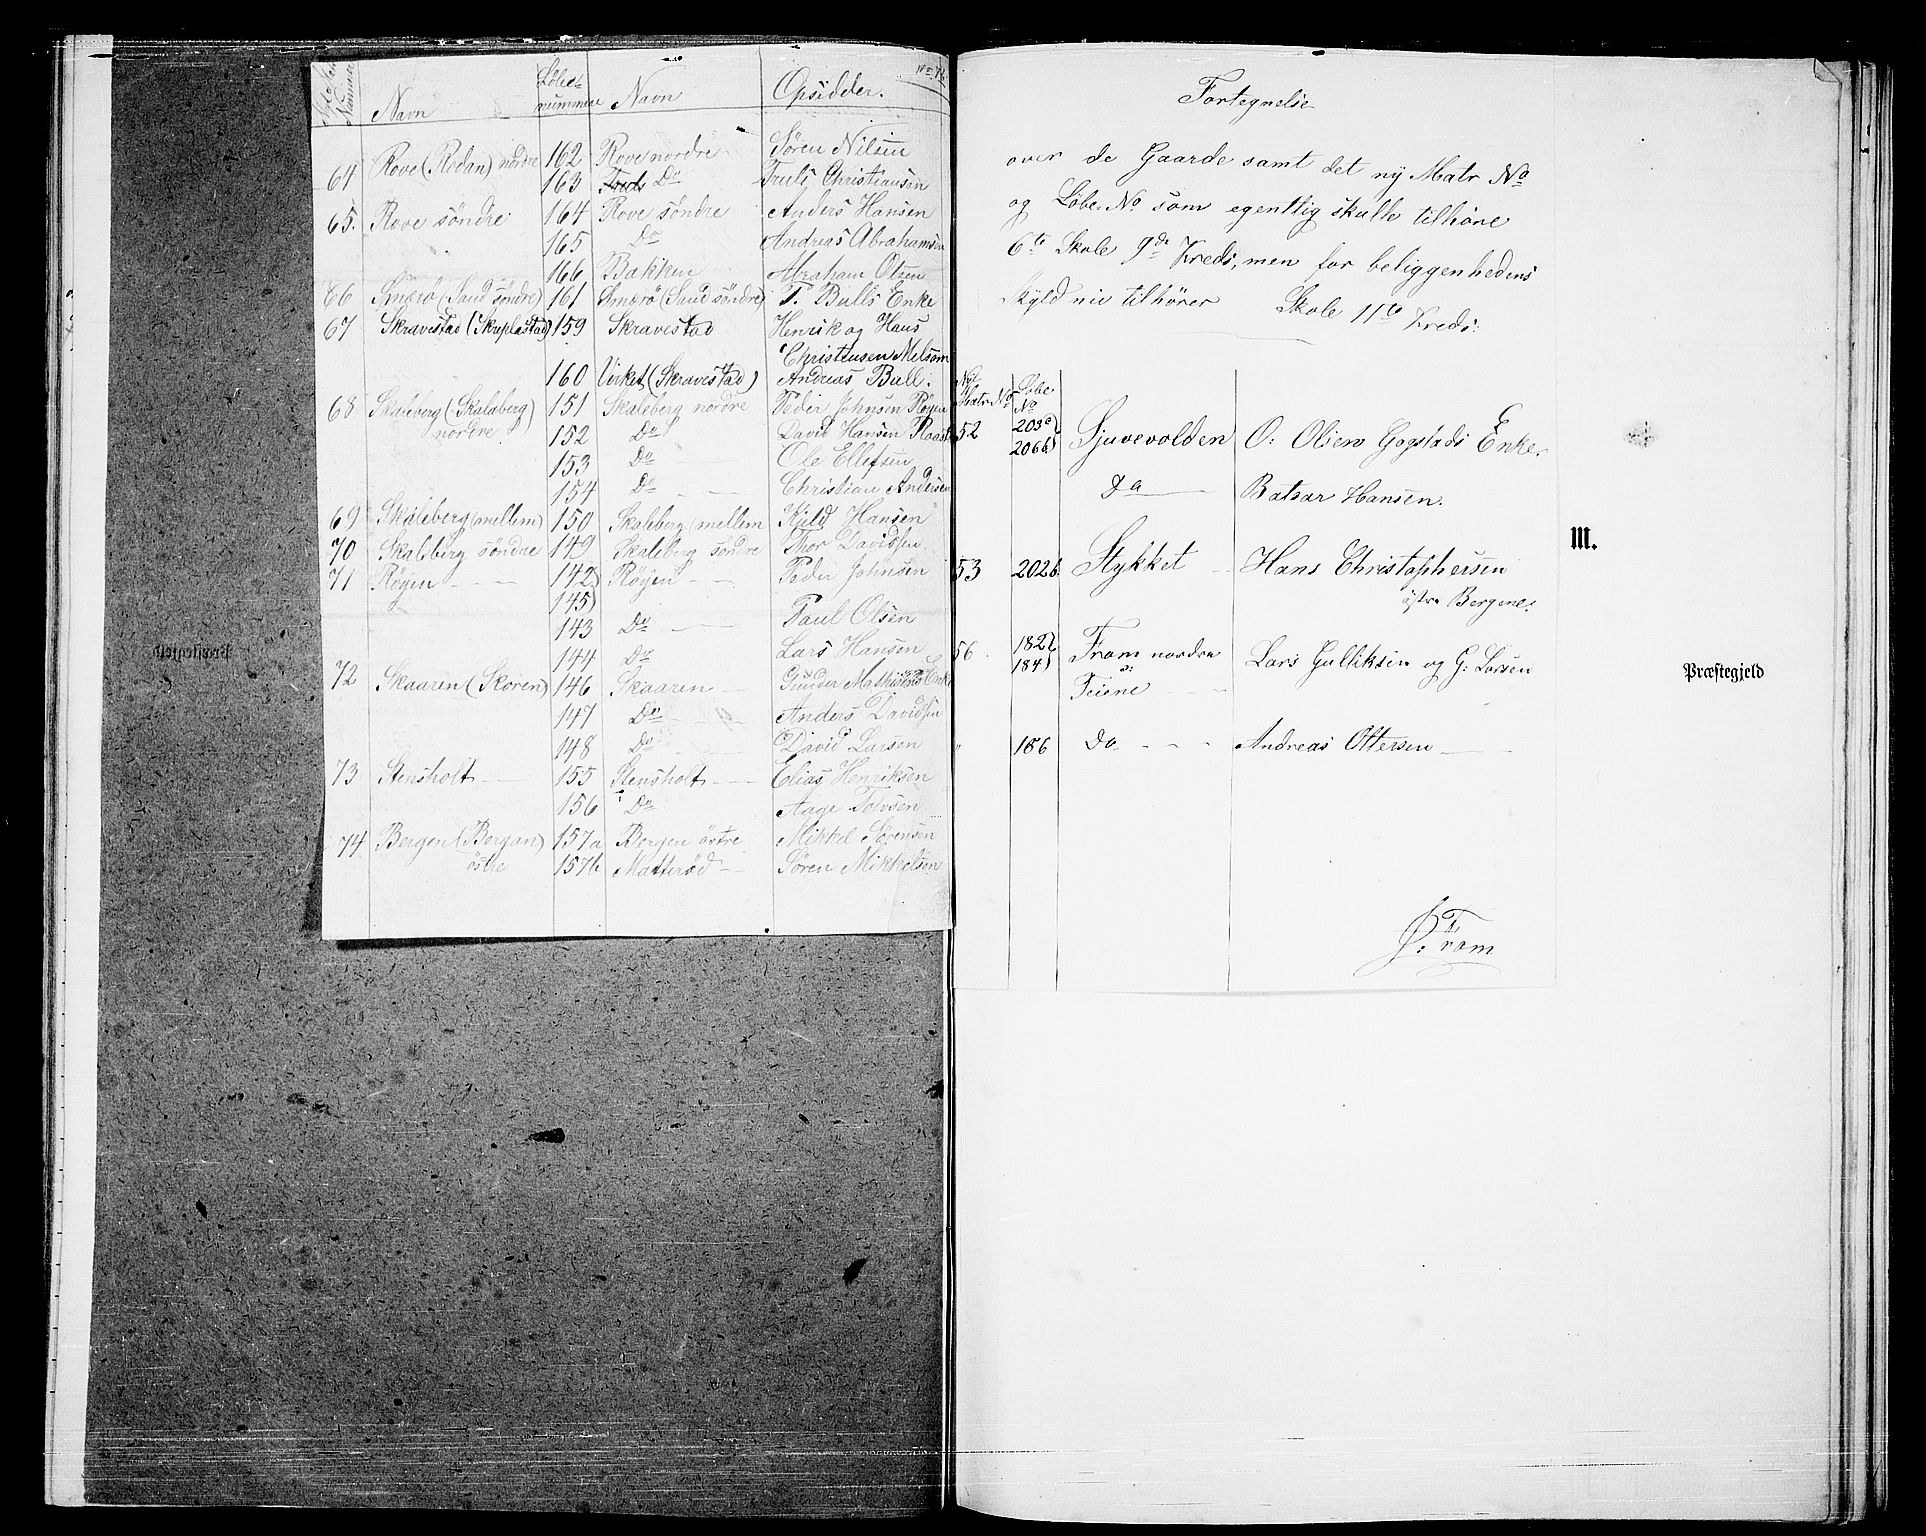 Navn Løbe-nummer Navn Opsidder.
64 Rove (Rodan) nordre 162 Rove nordre Søren Nilsen
163 Do Truls Christiansen
65. Rove söndre 164 Rove söndre Anders Hansen
165 Do Andreas Abrahamsen
166 Bakken Abraham Olsen
66 Smørö (Saud söndre) 161 Smørö (Saud söndre) T. Bulls Enke
67 Skravestad (Skreplastad) 159 Skravestad Henrik og Hans
Christensen Melsom
160 Virket (Skravestad) Andreas Bull.
68 Skaleberg (Skalaberg) 151 Skaleberg nordre Peder Johnsen Røyen
nordre 152 Do David Hansen
153 Do Ole Ellefsen
154 Do Christian Andersen
69 Skaleberg (mellem) 150 Skaleberg (mellem Kjeld Hansen
70 Skaleberg söndre 149 Skaleberg söndre Thor Davidsen
71 Røyen 142) Røyen Peder Johnsen
145)
143 Do Paul Olsen
144 Do Lars Hansen
72 Skaaren (Skoren) 146 Skaaren Gunder Mathisens Enke
147 Do Anders Davidsen
148 Do David Larsen
73 Stensholt 155 Stensholt Elias Henriksen
156 Do Aage Tolvsen
74 Bergen (Bergan) 157a Bergen östre Mikkel Sørensen
östre 157b Matterød Søren Mikkelsen
Præstegjeld
Fortegnelse
over de Gaarde samt det ny Matr No
og Løbe No som egentlig skulle tilhøre
6te Skole 9de Kreds, men for beliggenhedens
Skyld nu tilhører Skole 11te Kreds.
Matr No Løbe No
52 203a) 206b) Sjuevolden O: Olsen Gogstads Enke.
Do Batsar Hansen.
53 202b. Stykket Hans Christophersen
østre Bergene.
56 182) 184) Fram nordre Lars Gulliksen og G: Larsen
Teiene
" 186 Do Andreas Ottersen
Ø: Fram
III.
Præstegjeld